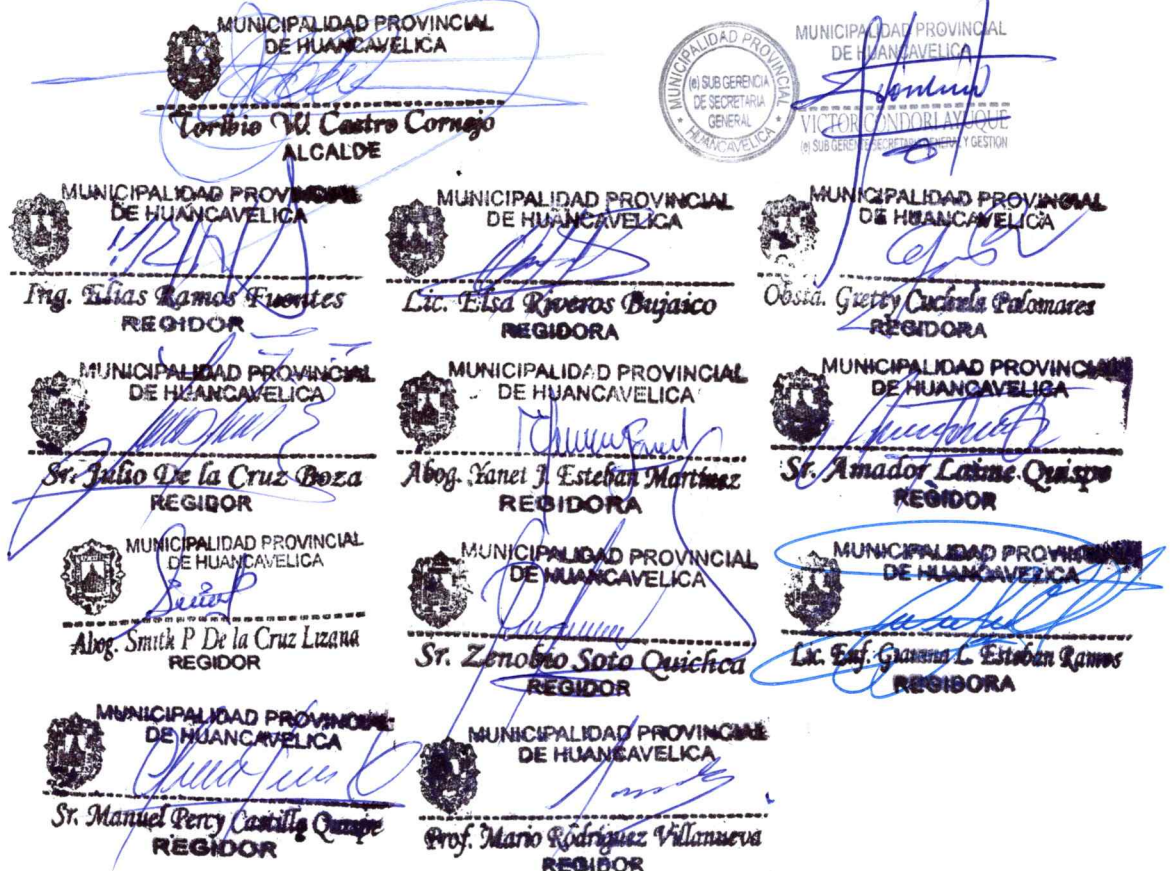 MUNICIPALIDAD PROVINCIAL
DE HUANCAVELICA
Toribio W. Castro Cornejo
ALCALDE
MUNICIPALIDAD PROVINCIAL
HUANCAVELICA
(e) SUB GERENCIA
DE SECRETARIA
GENERAL
MUNICIPALIDAD PROVINCIAL
DE HUANCAVELICA
VICTOR CONDORI AYUQUE
(e) SUB GERENTE SECRETARIA GENERAL Y GESTION
MUNICIPALIDAD PROVINCIAL
DE HUANCAVELICA
Ing. Elias Ramos Fuentes
REGIDOR
MUNICIPALIDAD PROVINCIAL
DE HUANCAVELICA
Lic. Elsa Riveros Bujaico
REGIDORA
MUNICIPALIDAD PROVINCIAL
DE HUANCAVELICA
Obsta. Gretty Palomares
REGIDORA
MUNICIPALIDAD PROVINCIAL
DE HUANCAVELICA
Sr. Julio De la Cruz Boza
REGIDOR
MUNICIPALIDAD PROVINCIAL
DE HUANCAVELICA
Abog. Yanet J. Esteban Martinez
REGIDORA
MUNICIPALIDAD PROVINCIAL
DE HUANCAVELICA
Sr. Amador Laime Quispe
REGIDOR
MUNICIPALIDAD PROVINCIAL
DE HUANCAVELICA
Abog. Smith P De la Cruz Lizana
REGIDOR
MUNICIPALIDAD PROVINCIAL
DE HUANCAVELICA
Sr. Zenobio Soto Quichca
REGIDOR
MUNICIPALIDAD PROVINCIAL
DE HUANCAVELICA
Lic. Enf. L. Esteban Ramos
REGIDORA
MUNICIPALIDAD PROVINCIAL
DE HUANCAVELICA
Sr. Manuel Percy Castilla Quispe
REGIDOR
MUNICIPALIDAD PROVINCIAL
DE HUANCAVELICA
Prof. Mario Rodriguez Villanueva
REGIDOR